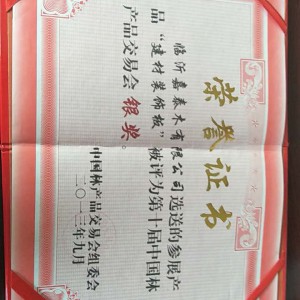 荣誉证书
临沂嘉泰木有限公司选送的参展产
品“建材装饰板”被评为第十届中国林
产品交易会 银奖。
中国林产品交易会组委会
二〇一三年九月